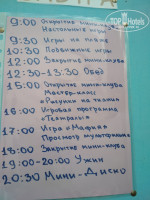 TopHotels
9:00 Открытие мини-клуба
Настольные игры
9:30 Игры на пляже
10:30 Подвижные игры
12:00 Закрытие мини-клуба
12:30-13:30 Обед
15:00 Открытие мини-клуба
Мастер-класс
"Рисунки на
16:00 Игровая программа
"Театралы"
17:00 Игра "Мафия"
Просмотр мультфильмов
18:00 Закрытие мини-клуба
19:00-20:00 Ужин
20:30 Мини-Диско